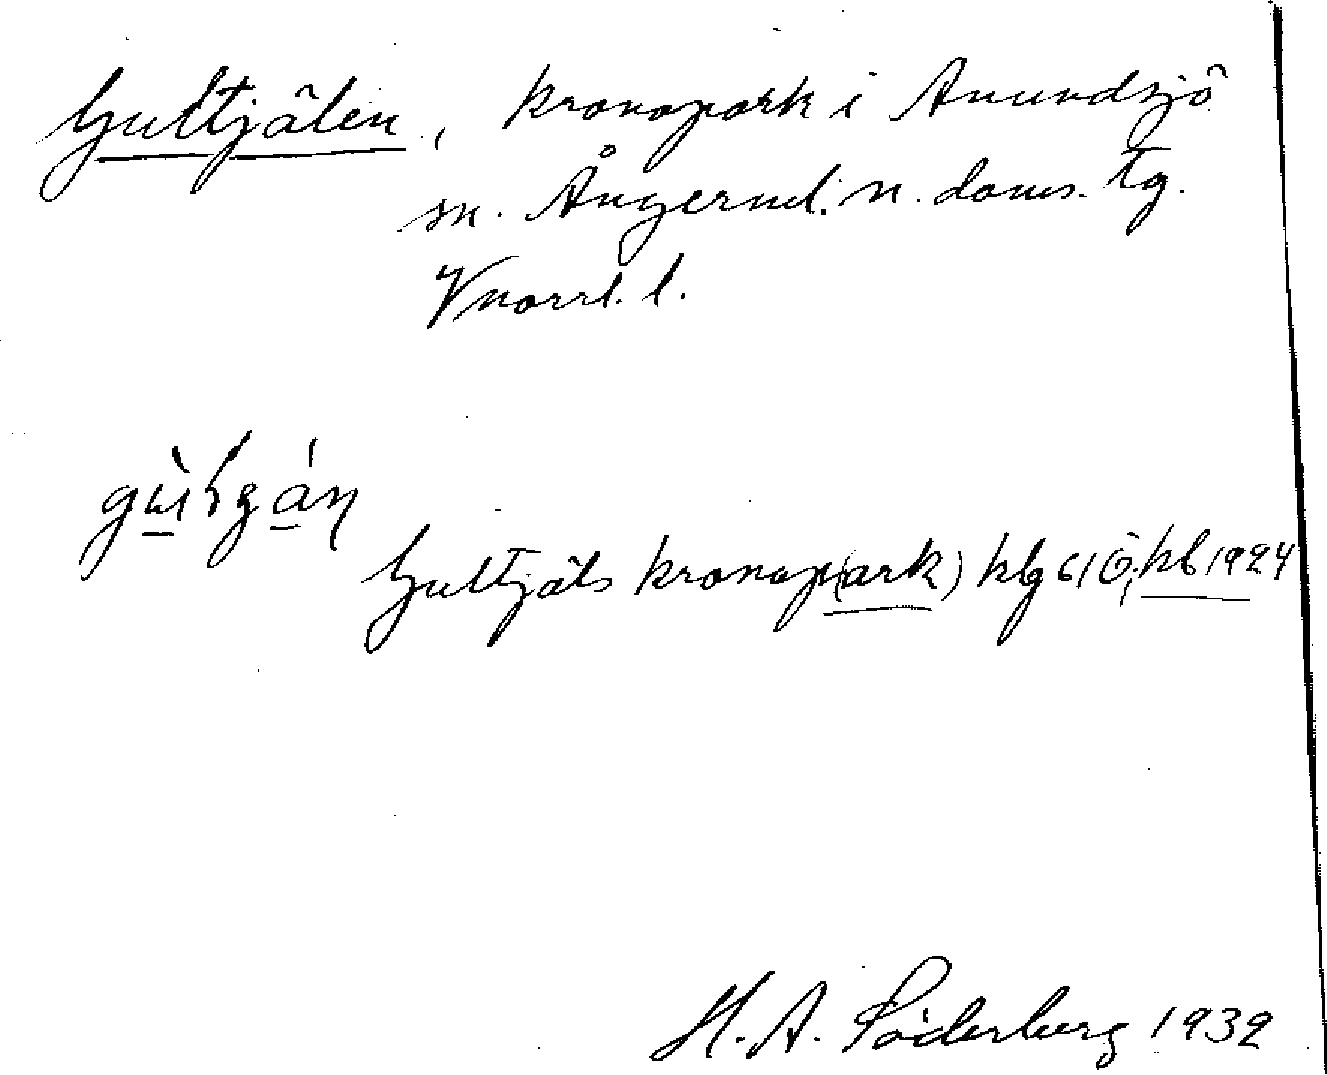 Gultjälen, kronopark i Anundsjö
sn. Ångerml. n. doms. tg.
Vnorrl. l.
Gultjäls kronop(ark) kbg 61 Ö, kb 1924
H. A. Söderberg 1932